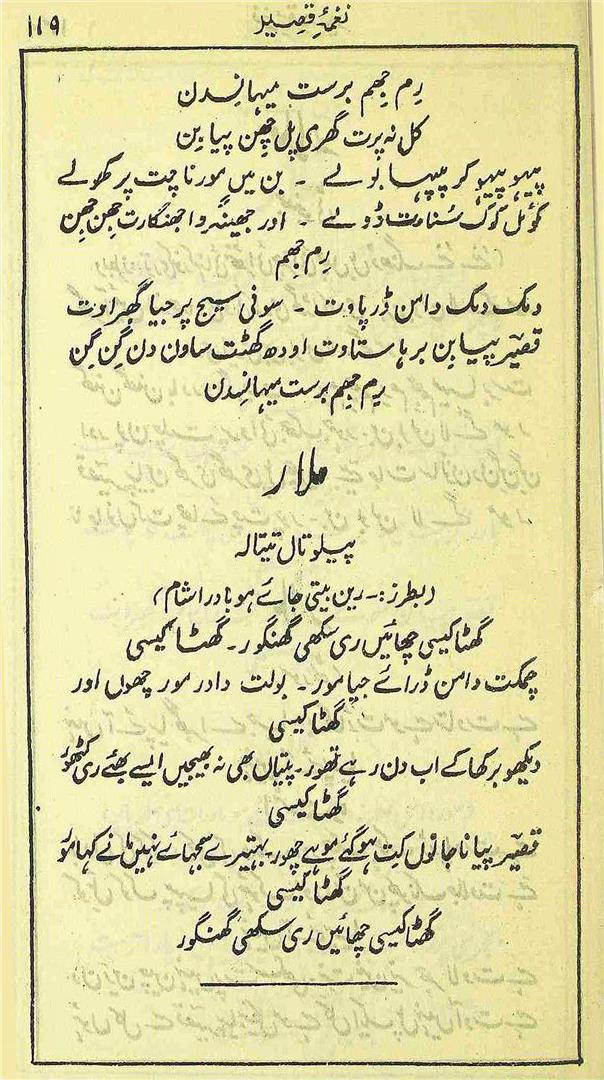 نغمۂ قصیر
۱۱۹
رِم جھم برست میہا نسدن
کل نہ پرت گھری پل چھن پیا بِن
پیہو پیہو کر پپیہا بولے ۔ بن میں مور ناچت پر کھولے
کوئل کوک سُناوت ڈولے ۔ اور جھینگر وا جھنگارت جھِن جھِن
رِم جھِم
دمک دمک دامن ڈرپاوت ۔ سونی سیج پر جیا گھبراوت
قصیر پیا بِن برہا ستاوت اودھ گھٹت ساون دن گِن گِن
رِم جھِم برست میہا نسدن
ملار
پیلو تال تیتالہ
(بطرز:۔ رین بیتی جائے ہو بادرا شام)
گھٹا کیسی چھائیں ری سکھی گھنگور ۔ گھٹا کیسی
چمکت دامن ڈرائے جیا مور ۔ بولت دادر مور چھوں اور
گھٹا کیسی
دیکھو برکھا کے اب دن رہے تھور ۔ پتیاں بھی نہ بھیجیں ایسے بھئے ری کٹھور
گھٹا کیسی
قصیر پیا نا جانوں کِت ہو گئے موہے چھور ۔ بہتیرے سمجھائے نہیں مانے کہا مور
گھٹا کیسی
گھٹا کیسی چھائیں ری سکھی گھنگور